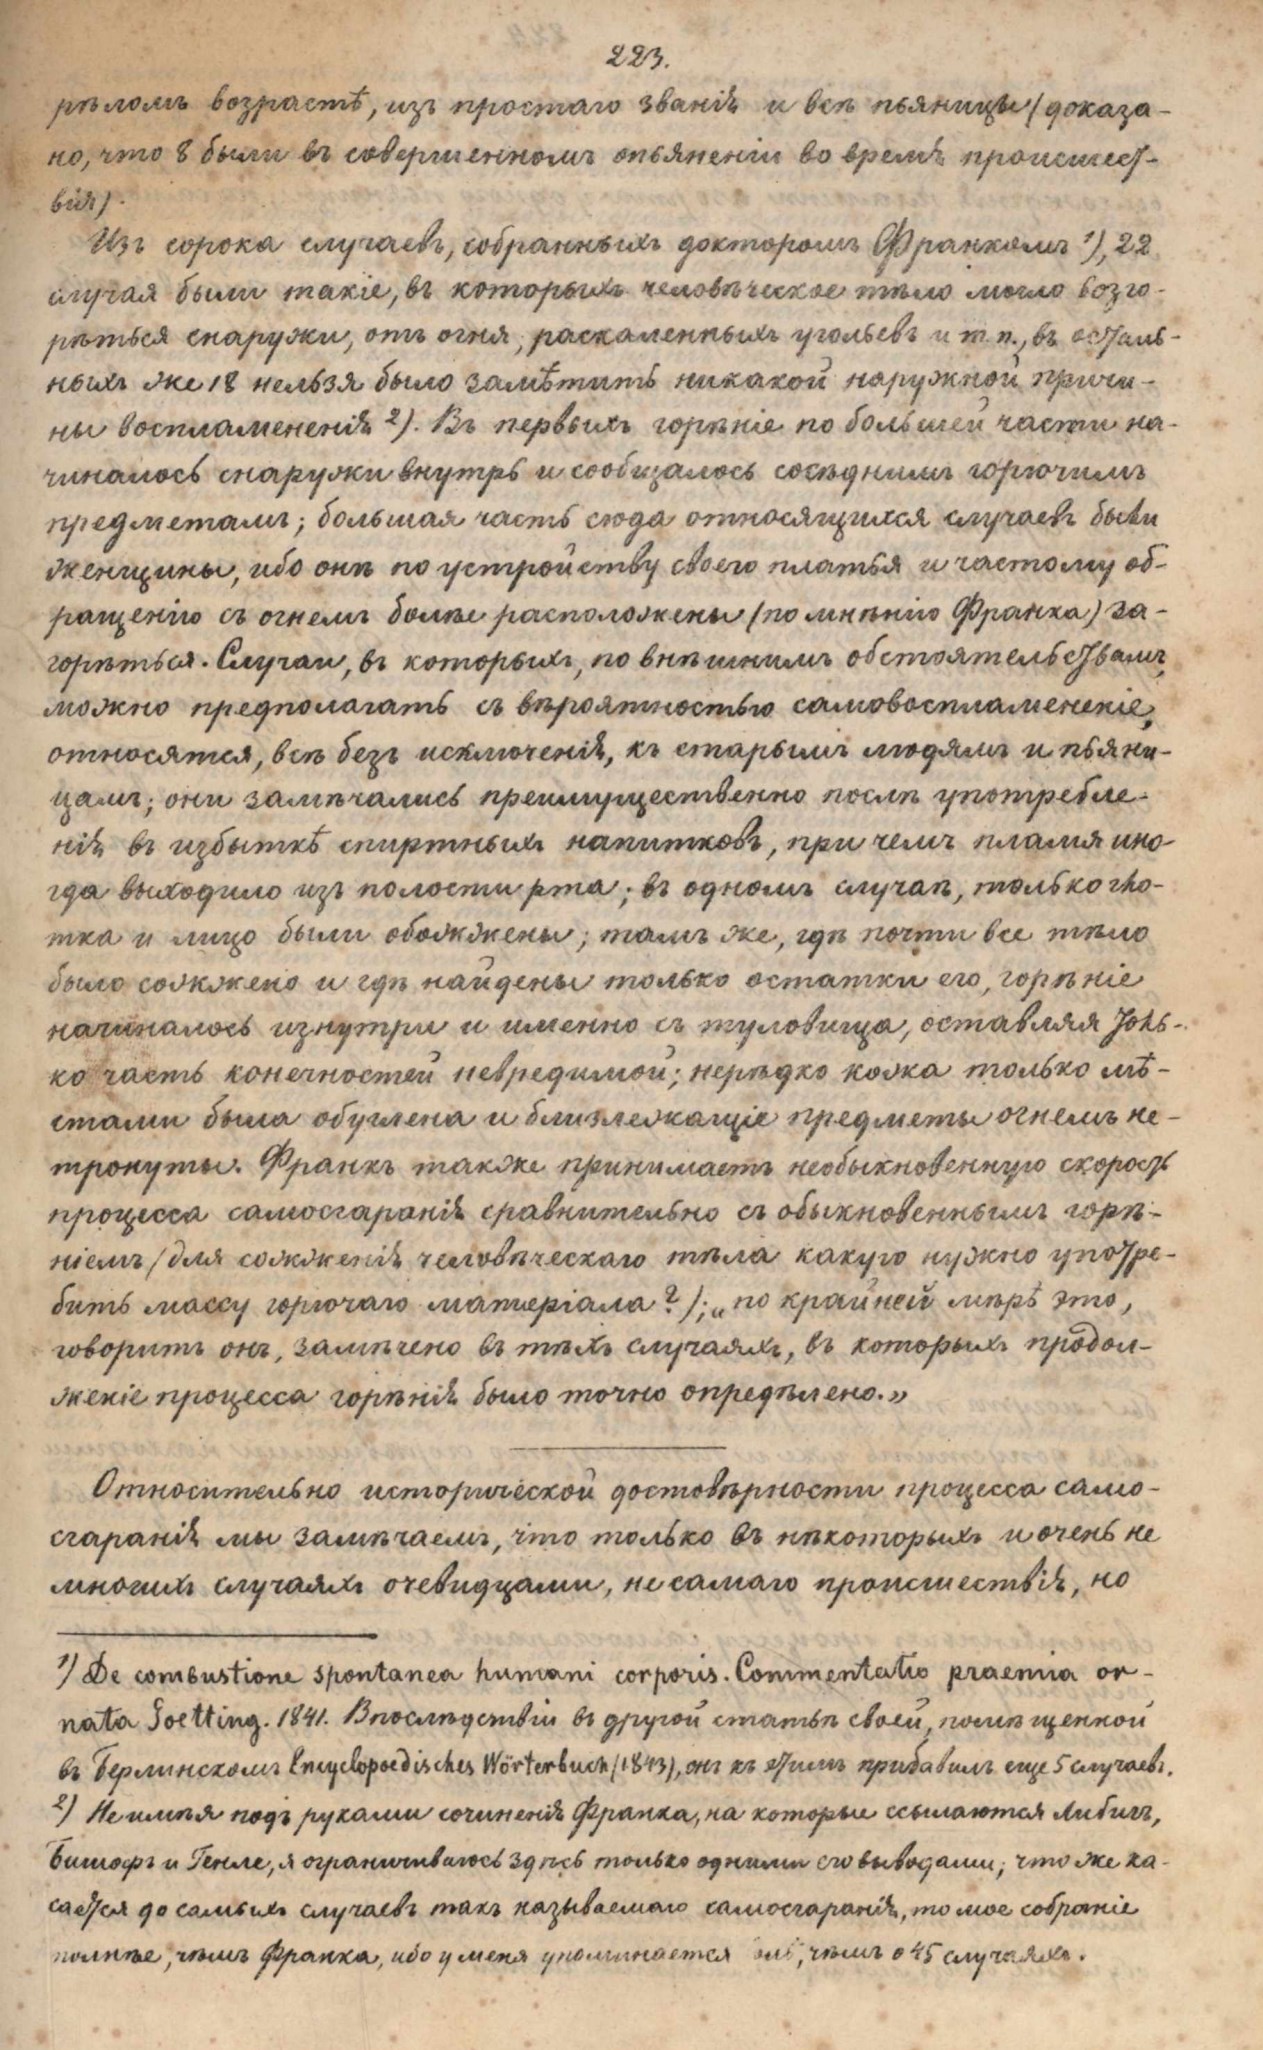 223.
рѣломъ возрастѣ, изъ простаго званія и всѣ пьяницы (доказа-
но, что 8 были въ совершенномъ опьяненіи во время происшест-
вія).
Изъ сорока случаевъ, собранныхъ докторомъ Франкомъ 1), 22
случая были такіе, въ которыхъ человѣческое тѣло могло возго-
рѣться снаружи, отъ огня, раскаленныхъ угольевъ и т. п., въ осталь-
ныхъ же 18 нельзя было замѣтить никакой наружной причи-
ны воспламененія 2). Въ первыхъ горѣніе по большей части на-
чиналось снаружи внутрь и сообщалось сосѣднимъ горючимъ
предметамъ; большая часть сюда относящихся случаевъ были
женщины, ибо онѣ по устройству своего платья и частому об-
ращенію съ огнемъ болѣе расположены (по мнѣнію Франка) за-
горѣться. Случаи, въ которыхъ, по внѣшнимъ обстоятельствамъ,
можно предполагать съ вѣроятностью самовоспламененіе,
относятся, всѣ безъ исключенія, къ старымъ людямъ и пьяни-
цамъ; они замѣчались преимущественно послѣ употребле-
нія въ избыткѣ спиртныхъ напитковъ, при чемъ пламя ино-
гда выходило изъ полости рта; въ одномъ случаѣ, только гло-
тка и лицо были обожжены; тамъ же, гдѣ почти все тѣло
было сожжено и гдѣ найдены только остатки его, горѣніе
начиналось изнутри и именно съ туловища, оставляя толь-
ко часть конечностей невредимой; нерѣдко кожа только мѣ-
стами была обуглена и близлежащіе предметы огнемъ не-
тронуты. Франкъ также принимаетъ необыкновенную скорость
процесса самосгаранія сравнительно съ обыкновеннымъ горѣ-
ніемъ (для сожженія человѣческаго тѣла какую нужно употре-
бить массу горючаго матеріала?); „по крайней мѣрѣ это,
говоритъ онъ, замѣчено въ тѣхъ случаяхъ, въ которыхъ продол-
женіе процесса горѣнія было точно опредѣлено.„
Относительно исторической достовѣрности процесса само-
сгаранія мы замѣчаемъ, что только въ нѣкоторыхъ и очень не
многихъ случаяхъ очевидцами, не самаго происшествія, но
1) De combustione spontanea humani corporis. Commentatio praemia or-
nata Goetting. 1841. Впослѣдствіи въ другой статьѣ своей, помѣщенной
въ Берлинскомъ Encyclopoedisches Wörterbuch (1843), онъ къ этимъ прибавилъ еще 5 случаевъ.
2) Не имѣя подъ руками сочиненія Франка, на которые ссылаются Либигъ,
Бишофъ и Генле, я ограничиваюсь здѣсь только одними его выводами; что же ка-
сается до самыхъ случаевъ такъ называемаго самосгаранія, то мое собраніе
полнѣе, чѣмъ Франка, ибо у меня упоминается чѣмъ о 45 случаяхъ.